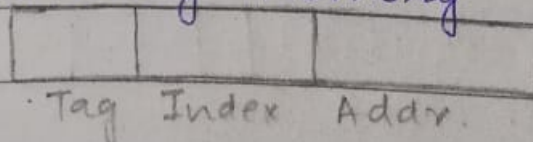 Tag Index Addr.